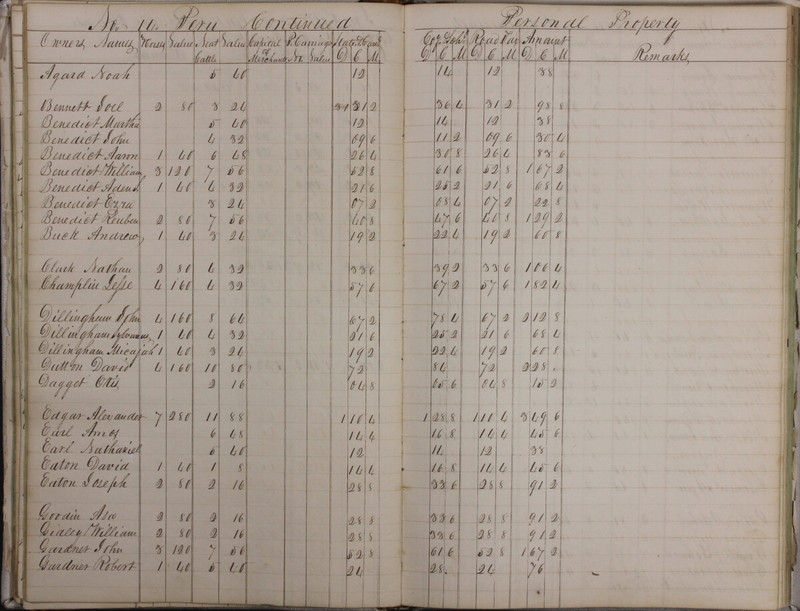 No. 11. Peru Continued Personal Property
Owners Names Horses Value Neat Cattle Value Capital of Merchants P. Carriages No. Value State & Count D C M Co. & Sch. D C M Road Tax D C M Amount D C M Remarks
Agard Noah 5 40 12 14 12 38
Bennett Joel 2 80 3 24 31 2 36 4 31 2 98 8
Benedict Martha 5 40 12 14 12 38
Benedict John 4 32 09 6 11 2 09 6 30 4
Benedict Aaron 1 40 6 48 26 4 30 8 26 4 83 6
Benedict William 3 120 7 56 52 8 61 6 52 8 1 67 2
Benedict 1 40 4 32 21 6 25 2 21 6 68 4
Benedict Ezra 3 24 07 2 08 4 07 2 22 8
Benedict Reuben 2 80 7 56 40 8 47 6 40 8 1 29 2
Buck Andrew 1 40 3 24 19 2 22 4 19 2 60 8
Clark Nathan 2 80 4 32 33 6 39 2 33 6 1 06 4
Champlin Jesse 4 160 4 32 57 6 67 2 57 6 1 82 4
Dillingham John 4 160 8 64 67 2 78 4 67 2 2 12 8
Dillingham Sylvanus 1 40 4 32 21 6 25 2 21 6 68 4
Dillingham Micajah 1 40 3 24 19 2 22 4 19 2 60 8
Dutton David 4 160 10 80 72 84 72 2 28
Dagget Otis 2 16 04 8 05 6 04 8 15 2
Edgar Alexander 7 280 11 88 1 10 4 1 28 8 1 10 4 3 49 6
Earl Amos 6 48 14 4 16 8 14 4 45 6
Earl Nathaniel 5 40 12 14 12 38
Eaton David 1 40 1 8 14 4 16 8 14 4 45 6
Eaton Joseph 2 80 2 16 28 8 33 6 28 8 91 2
Goodin 2 80 2 16 28 8 33 6 28 8 91 2
William 2 80 2 16 28 8 33 6 28 8 91 2
Gardner John 3 120 7 56 52 8 61 6 52 8 1 67 2
Gardner Robert 1 40 5 40 24 28 24 76